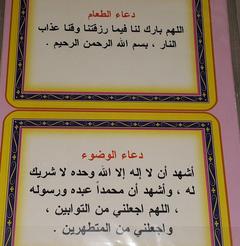 دعاء الطعام
اللهم بارك لنا فيما رزقتنا وقنا عذاب
النار ، بسم الله الرحمن الرحيم .
دعاء الوضوء
أشهد أن لا إله إلا الله وحده لا شريك
له ، وأشهد أن محمداً عبده ورسوله
، اللهم اجعلني من التوابين ،
واجعلني من المتطهرين .